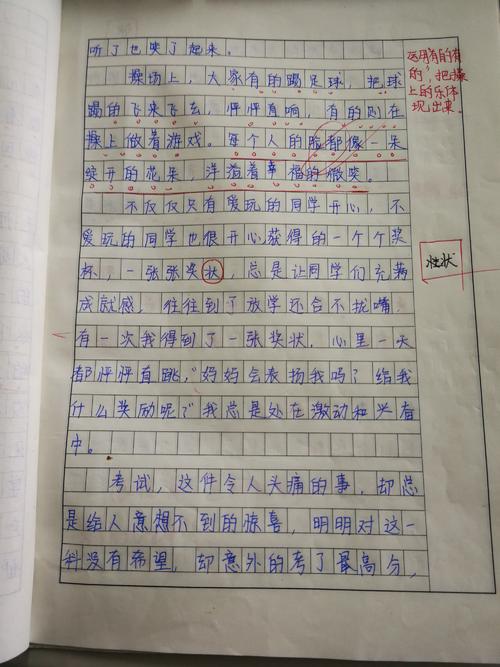 听了也笑了起来。
操场上，大家有的踢足球，把球
踢的飞来飞去，怦怦直响，有的则在
操上做着游戏。每个人的脸都像一朵
笑开的花朵，洋溢着幸福的微笑。
不仅仅只有爱玩的同学开心，不
爱玩的同学也很开心获得的一个个奖
杯，一张张奖状，总是让同学们充满
成就感，往往到了放学还合不拢嘴，
有一次我得到了一张奖状，心里一天
都怦怦直跳，“妈妈会表扬我吗？给我
什么奖励呢？”我总是处在激动和兴奋
中。
考试，这件令人头痛的事，却总
是给人意想不到的惊喜，明明对这一
科没有希望，却意外的考了最高分，
运用有的有
的，把操
上的乐体
现出来。
状